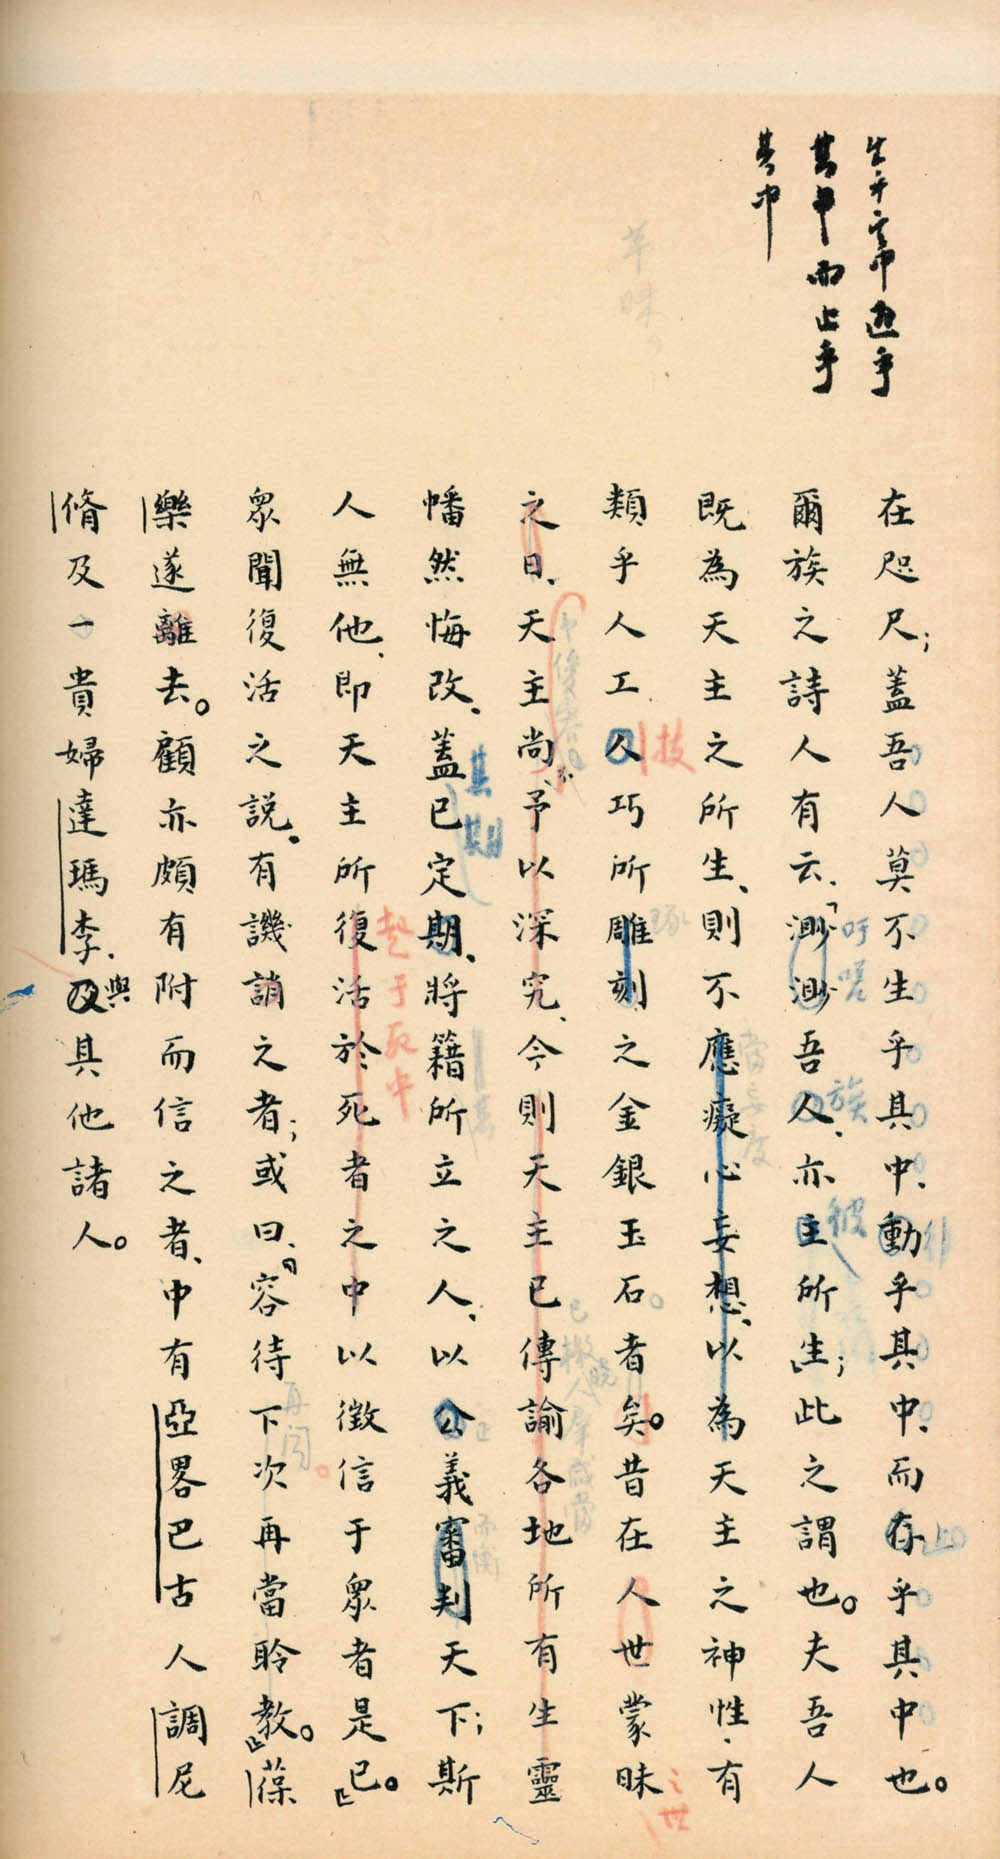 其中而止乎
其中
在咫尺；蓋吾人莫不生乎其中、動乎其中、而存乎其中也。
爾族之詩人有云、「渺渺吾人、亦主所生」；此之謂也。夫吾人
既為天主之所生、則不應癡心妄想、以為天主之神性、有
類乎人工人巧所雕刻之金銀玉石者矣。昔在人世蒙昧
之日、天主尚不予以深究、今則天主已傳諭各地所有生靈
幡然悔改、蓋已定期、將籍所立之人、以公義審判天下；斯
人無他、即天主所復活於死者之中以徵信于眾者是已。」
眾聞復活之說、有譏誚之者；或曰、「容待下次再當聆教。」葆
樂遂離去。顧亦頗有附而信之者、中有亞畧巴古人調尼
脩及一貴婦達瑪李、與及其他諸人。
技
其期
起于死中
吁嗟
族
彼
琢
上
再聞
之世